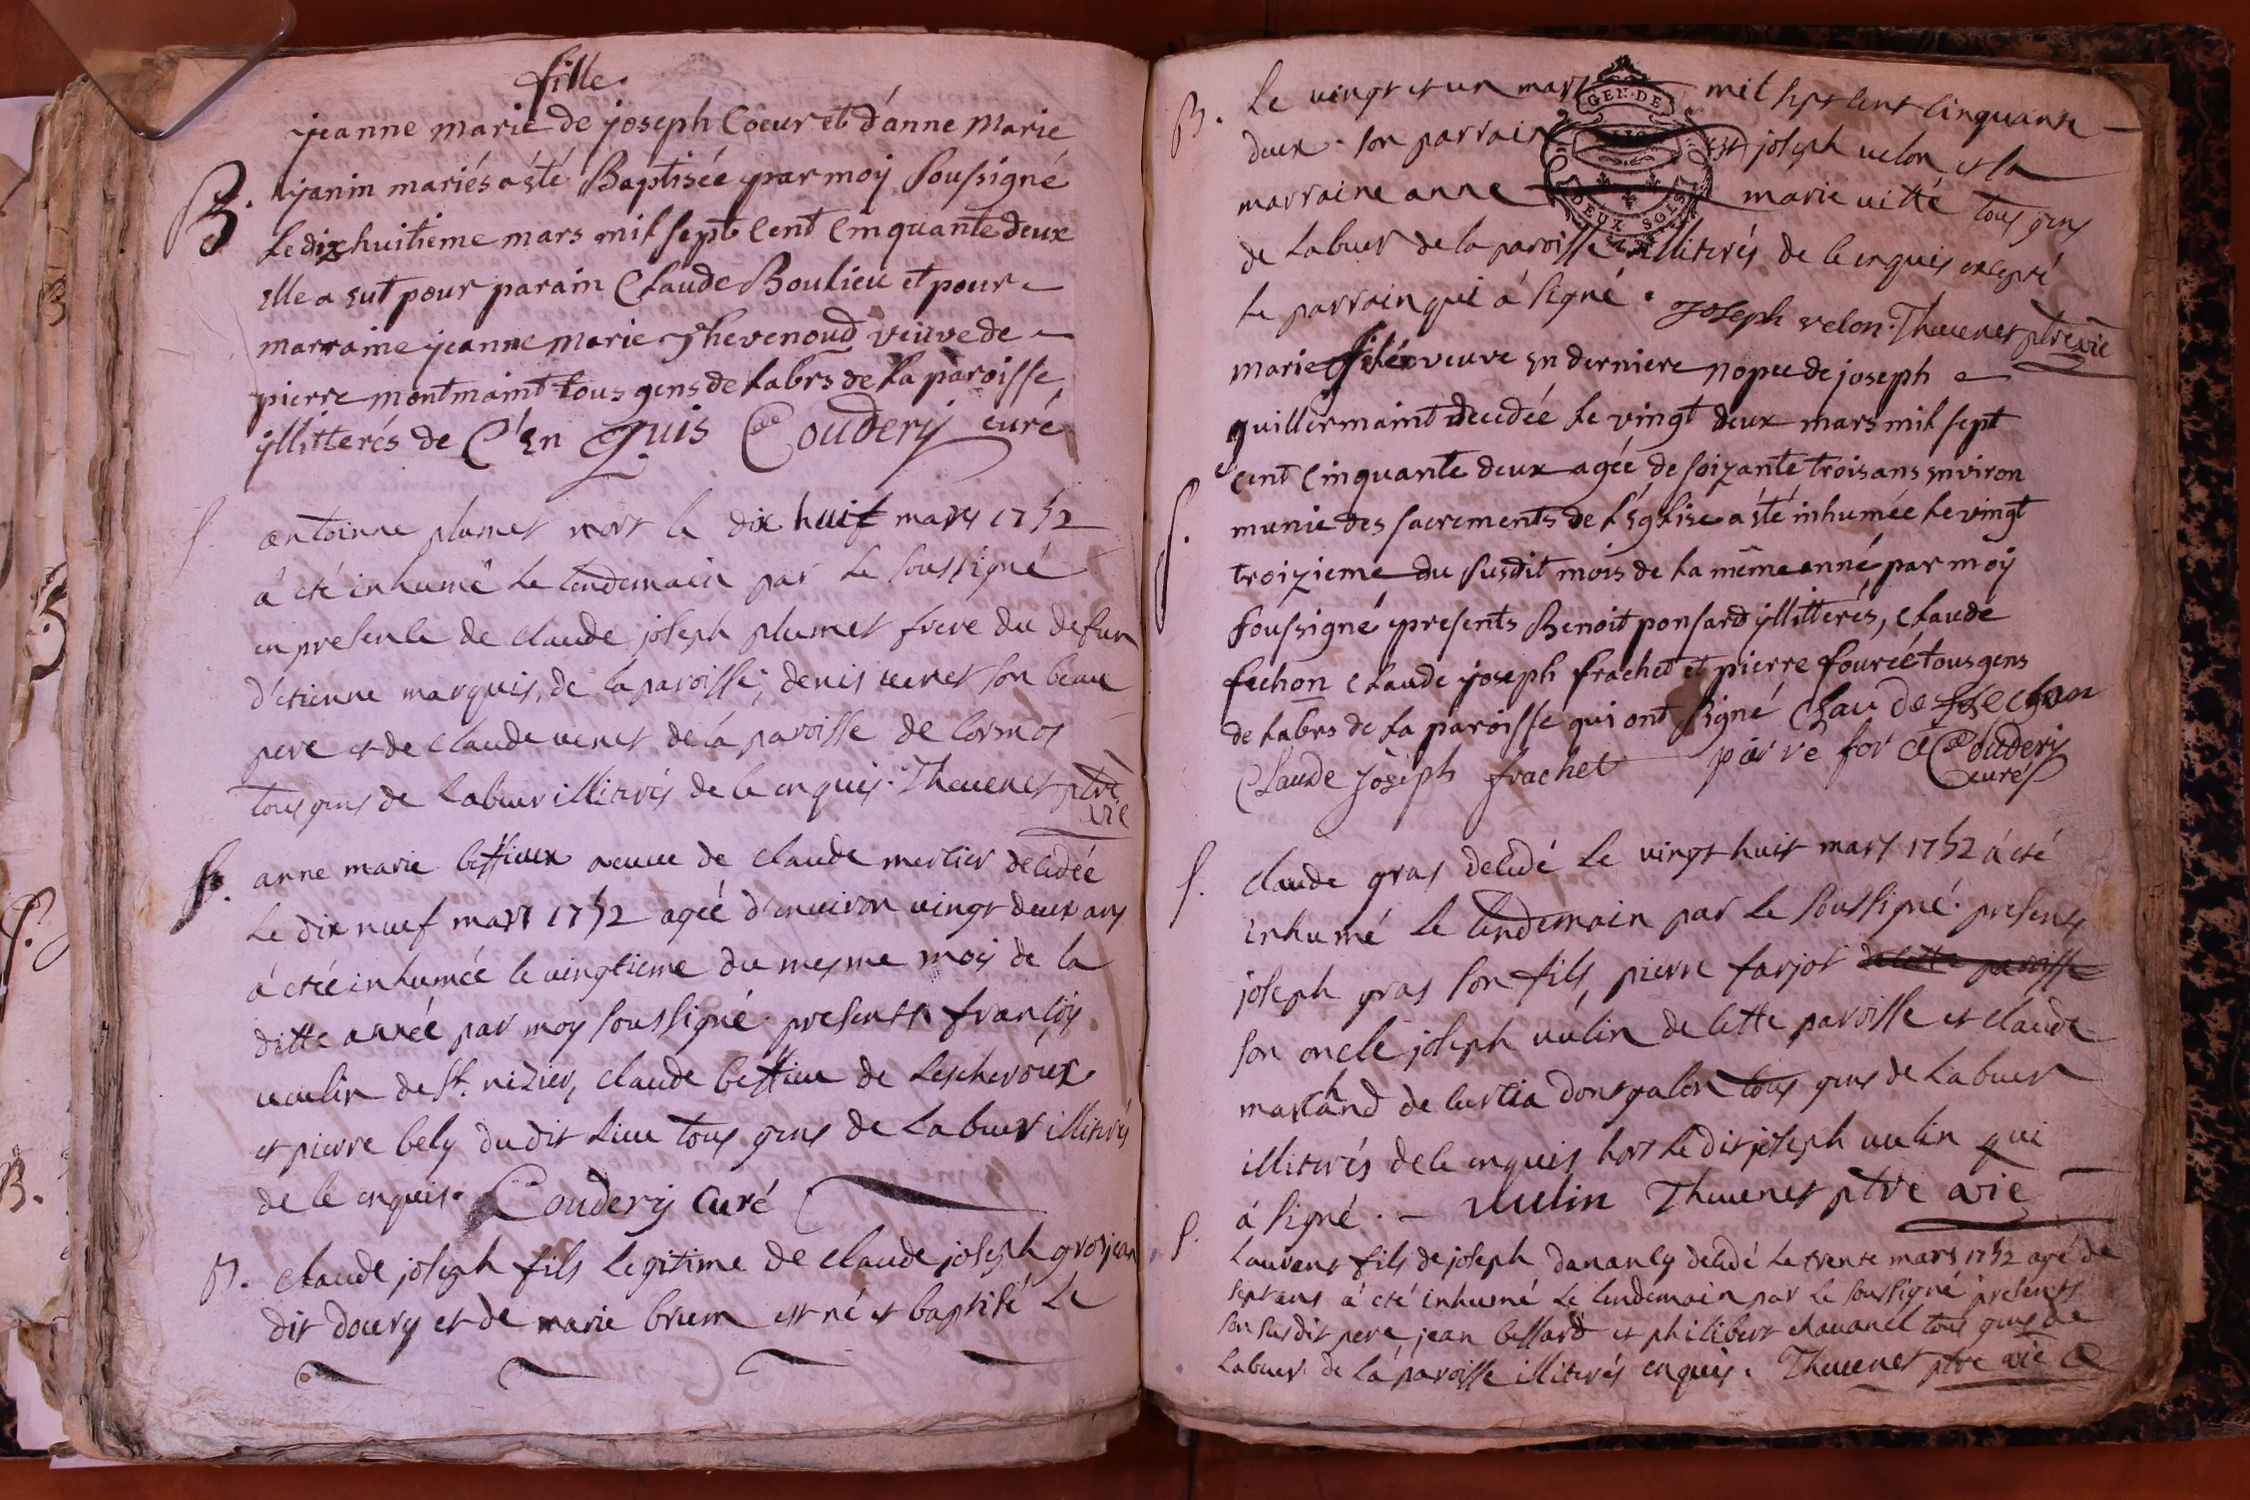 fille
jeanne marie de joseph Coeur et d'anne Marie
B. janin mariés a été Baptisée par moy soussigné
Le dixhuitieme mars mil sept Cent Cinquante deux
elle a eut pour parain Claude Boulieu et pour
marraine jeanne marie Thevenoud veuve de
pierre montmaint tous gens de Labrs de La paroisse
jllitterés de C'en Quis Couderij curé
S. antoinne plumet mort le dix huit mars 1752
a été inhumé le lendemain par le soussigné
en presence de claude joseph plumet frere du defun
d'etienne marquis, de la paroisse, denis venet son beau
pere et de claude venet de la paroisse de Cormos
tous gens de Labeur illiterés de ce enquis. Thevenet ptre
vie
S. anne marie beffieux veuve de claude mercier decedée
Le dix nuef mars 1752 ageé d'environ vingt deux ans
á etée inhumée le vingtieme du mesme mois de la
ditte année par moy soussigné presents françois
vulin de St. nizier, claude beffieu de Lescheroux
et pierre bely du dit Lieu tous gens de Labeur illiterés
de ce enquis. Couderij Curé
B. claude joseph fils legitime de claude joseph grosjean
dit doury et de marie brun est né et baptisé Le
B. Le vingt et un mars mil sept cent cinquante
GEN. DE
deux. son parrain est joseph velon et la
marraine anne marie vitté tous gens
DEUX SOLS
de Labeur de la paroisse illiterés de ce enquis excepté
Le parrain qui á signé. joseph velon. Thevenet ptre vie
marie veuve en derniere nopce de joseph
guillermaint decedée Le vingt deux mars mil sept
S. Cent Cinquante deux agée de soizante trois ans environ
munie des sacrements de L'église a été inhumée Le vingt
troizieme du susdit mois de La même anné par moy
soussigné presents Benoit ponsard jllitterés, Claude
fechon Claude joseph frachet et pierre fourcé tous gens
de Labrs de La paroisse qui ont signé Claude fechon
Claude joseph frachet parre for cé Couderij
curé
S. claude gras decedé Le vingt huit mars 1752 á été
inhumé le lendemain par Le soussigné. presents
joseph gras son fils, pierre farjot de cette paroisse
son oncle joseph vulin de cette paroisse et claude
marchand de Curtia dongalon tous gens de Labeur
illiterés de ce enquis hors Le dit joseph vulin qui
á signé. vulin Thevenet ptre vie
S. Laurent fils de joseph danancy decedé Le trente mars 1752 agé de
sept ans á été inhumé Le lendemain par Le soussigné presents
son susdit pere, jean bessard et philibert chavanel tous gens de
Labeur de La paroisse illiterés enquis. Thevenet ptre vie